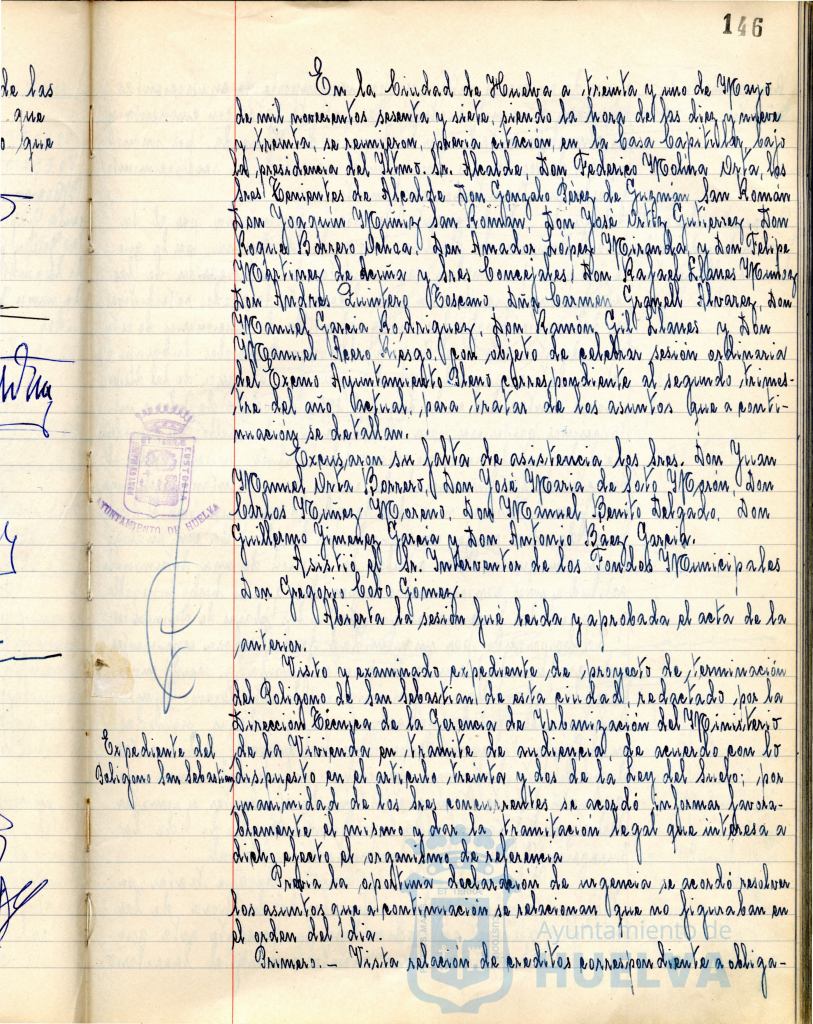 146
de las
que
que
En la Ciudad de Huelva a treinta y uno de Mayo
de mil novecientos sesenta y siete, siendo la hora de las diez y nueve
y treinta, se reunieron, previa citación, en la Casa Capitular, bajo
la presidencia del Iltmo. Sr. Alcalde, Don Federico Molina Orta, los
Sres Tenientes de Alcalde Don Gonzalo Perez de Guzman San Román
Don Joaquín Muñiz San Román, Don José Ortiz Gutierrez, Don
Roque Barrero Ochoa, Don Amador López Miranda, y Don Felipe
Martinez de Acuña y Sres Concejales, Don Rafael Llanes Muñoz
Don Andres Quintero Toscano, Dña Carmen Granell Alvarez, Don
Manuel García Rodriguez, Don Ramón Gil Llanes y Don
Manuel Acero Riesgo, con objeto de celebrar sesión ordinaria
del Excmo Ayuntamiento Pleno correspondiente al segundo trimes-
tre del año actual, para tratar de los asuntos que a conti-
nuación se detallan.
Excusaron su falta de asistencia los Sres. Don Juan
Manuel Orta Borrero, Don José Maria de Soto Morón, Don
Carlos Núñez Moreno, Don Manuel Benito Delgado, Don
Guillermo Jimenez García y Don Antonio Báez García.
Asistió el Sr. Interventor de los Fondos Municipales
Don Gregorio Cobo Gómez.
Abierta la sesión fué leida y aprobada el acta de la
anterior.
Visto y examinado expediente de proyecto de terminación
del Poligono de San Sebastian de esta ciudad, redactado por la
Dirección Técnica de la Gerencia de Urbanización del Ministerio
Expediente del
Poligono San Sebastian
de la Vivienda en tramite de audiencia, de acuerdo con lo
dispuesto en el articulo treinta y dos de la Ley del Suelo; por
unanimidad de los Sres concurrentes se acordó informar favora-
blemente el mismo y dar la tramitacion legal que interesa a
dicho efecto el organismo de referencia
Previa la oportuna declaración de urgencia se acordó resolver
los asuntos que a continuación se relacionan que no figuraban en
el orden del dia.
Primero. - Vista relación de creditos correspondiente a obliga-
AYUNTAMIENTO DE HUELVA
Ayuntamiento de
HUELVA